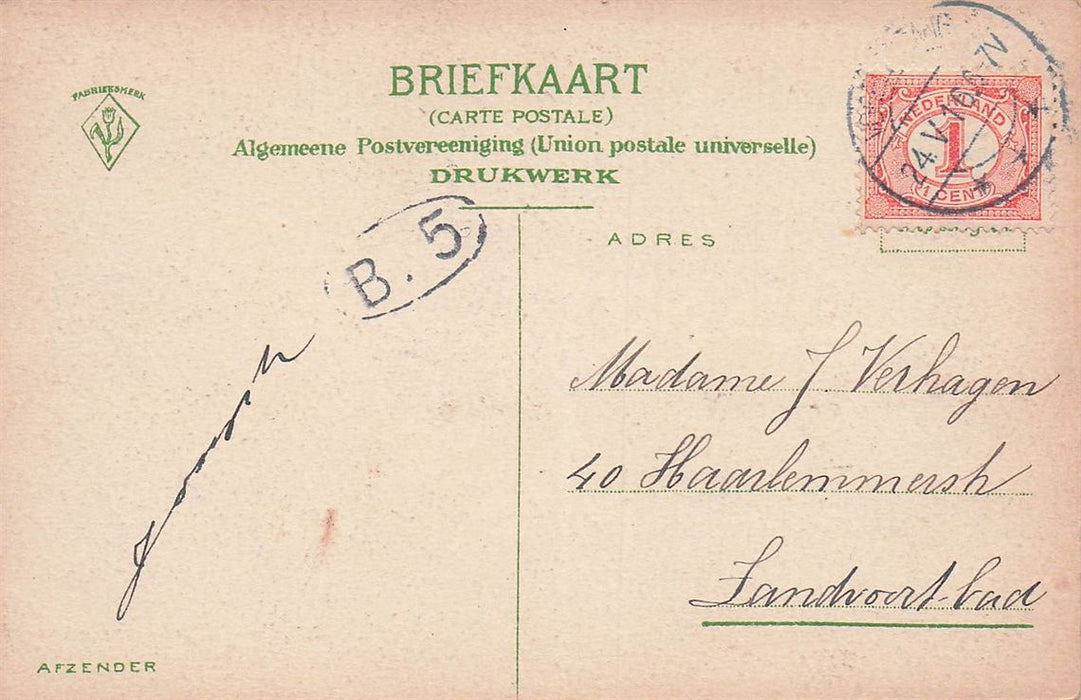 FABRIEKSMERK
BRIEFKAART
(CARTE POSTALE)
Algemeene Postvereeniging (Union postale universelle)
DRUKWERK
NEDERLAND
1
1 CENT
24 V 10 6-7V
B. 5
ADRES
Madame J. Verhagen
40 Haarlemmerstr
Zandvoort-bad
AFZENDER